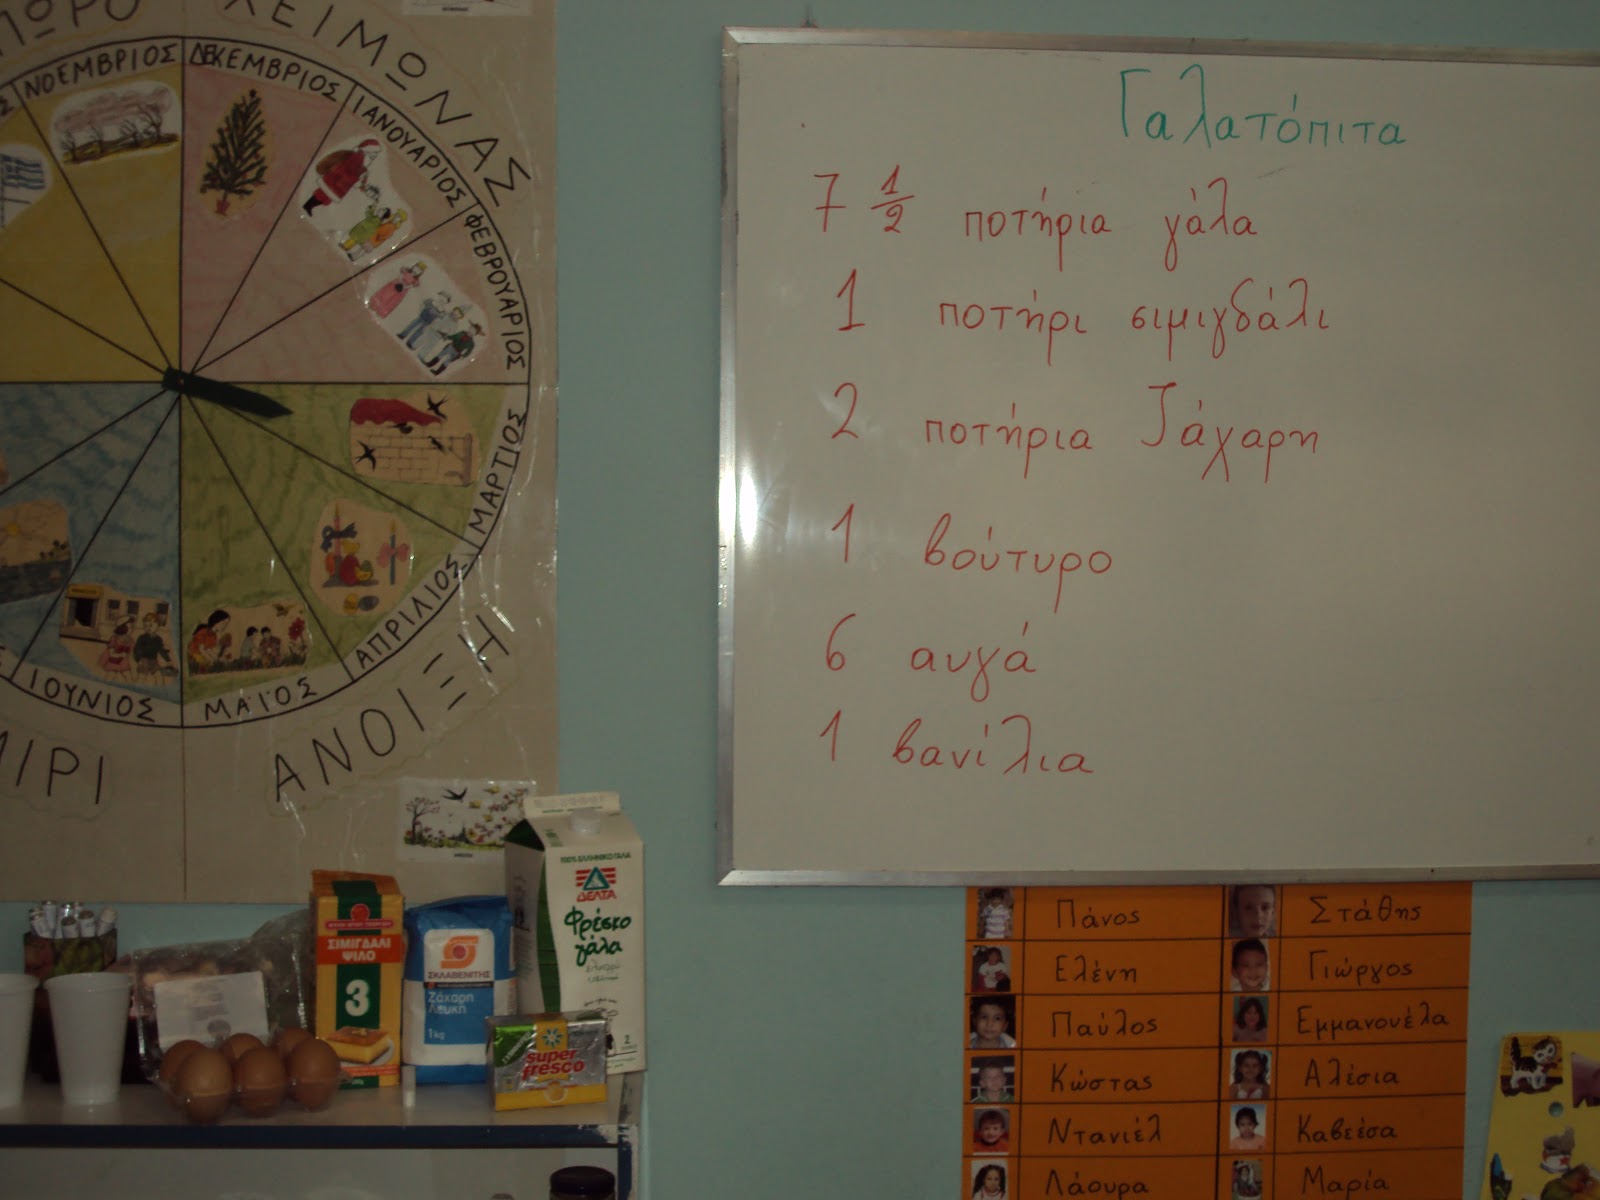 ΧΕΙΜΩΝΑΣ
ΝΟΕΜΒΡΙΟΣ
ΔΕΚΕΜΒΡΙΟΣ
ΙΑΝΟΥΑΡΙΟΣ
ΦΕΒΡΟΥΑΡΙΟΣ
ΜΑΡΤΙΟΣ
ΑΠΡΙΛΙΟΣ
ΜΑΪΟΣ
ΙΟΥΝΙΟΣ
ΑΝΟΙΞΗ
Γαλατόπιτα
7 1/2 ποτήρια γάλα
1 ποτήρι σιμιγδάλι
2 ποτήρια ζάχαρη
1 βούτυρο
6 αυγά
1 βανίλια
ΣΙΜΙΓΔΑΛΙ
ΨΙΛΟ
3
ΣΚΛΑΒΕΝΙΤΗΣ
Ζάχαρη
Λευκή
1kg
100% ΕΛΛΗΝΙΚΟ ΓΑΛΑ
ΔΕΛΤΑ
Φρέσκο
γάλα
2
super
fresco
Πάνος Στάθης
Ελένη Γιώργος
Παύλος Εμμανουέλα
Κώστας Αλέσια
Ντανιέλ Καβεέσα
Λάουρα Μαρία